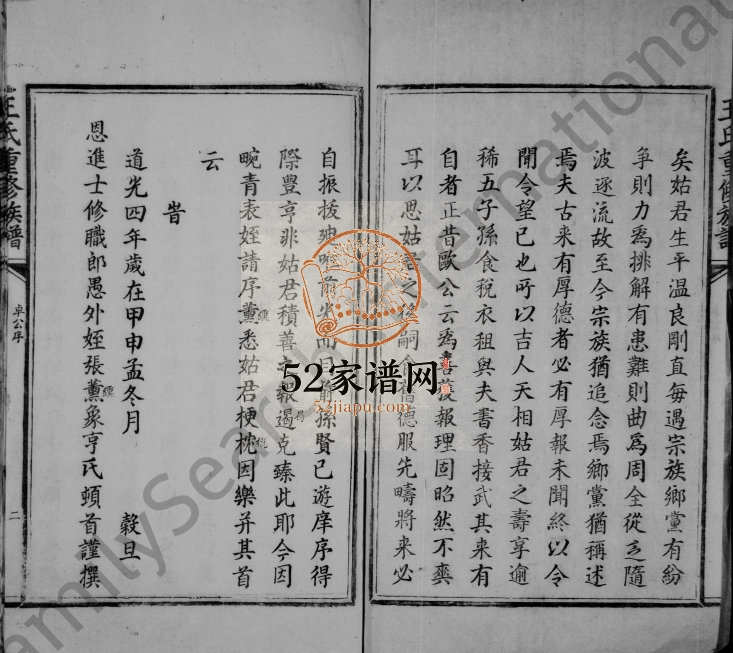 王氏重修族譜
矣姑君生平温良剛直每遇宗族鄉黨有紛
争則力爲排解有患難則曲爲周全從乏隨
波逐流故至今宗族猶追念焉鄉黨猶稱述
焉夫古来有厚德者必有厚報未聞終以令
聞令望已也所以吉人天相姑君之壽享逾
稀五子孫食稅衣祖與夫書香接武其来有
自者正昔歐公云爲善獲報理固昭然不爽
耳以思姑君之後嗣食舊德服先疇將来必
自振拔 前光而曰前孫賢已遊庠序得
際豐亨非姑君積善之報遏克臻此耶今因
畹青表姪請序薰悉姑君梗枕因樂并其首
云
旹
道光四年歲在甲申孟冬月 穀旦
恩進士修職郎愚外姪張薰象亨氏頓首謹撰
王氏重修族譜
卓公序
二
52家谱网
52jiapu.com
FamilySearch International